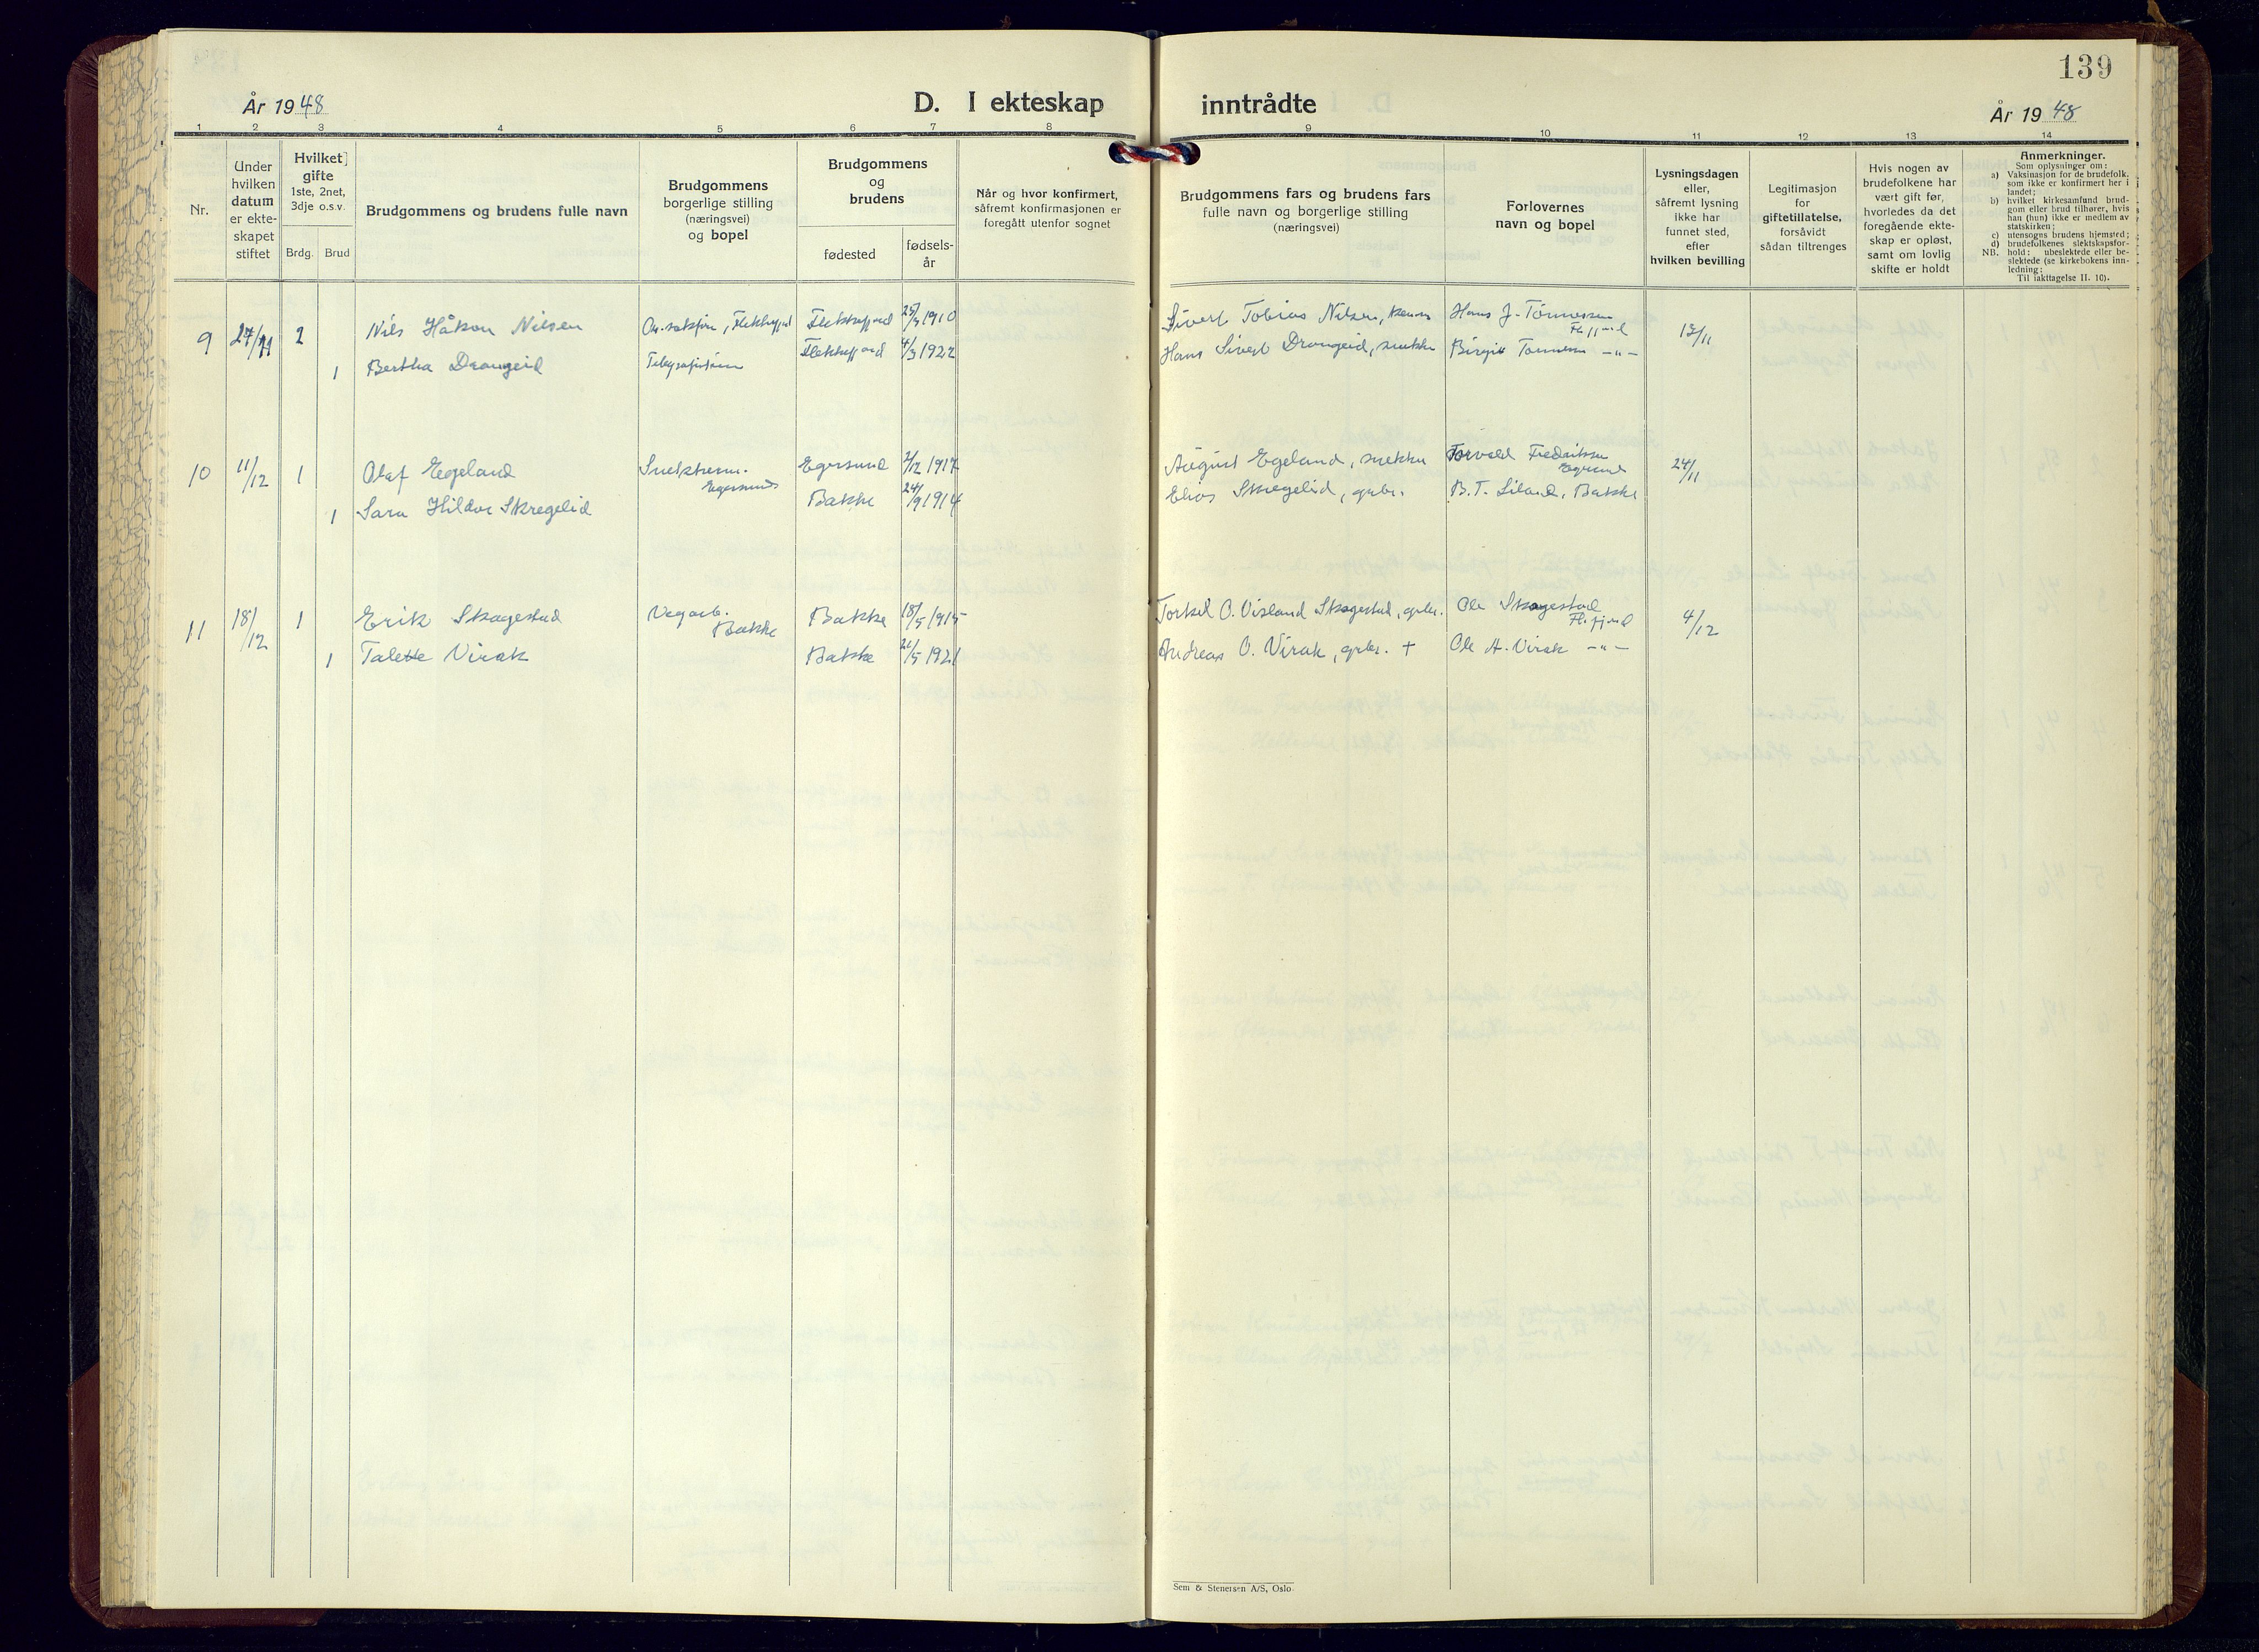 139
År 1948
D. I ekteskap inntrådte
År 1948
1 2 3 4 5 6 7 8 9 10 11 12 13 14
Nr.
Under
hvilken
datum
er ekte-
skapet
stiftet
Hvilket
gifte
1ste, 2net,
3dje o.s.v.
Brdg. Brud
Brudgommens og brudens fulle navn
Brudgommens
borgerlige stilling
(næringsvei)
og bopel
Brudgommens
og
brudens
fødested
fødsels-
år
Når og hvor konfirmert,
såfremt konfirmasjonen er
foregått utenfor sognet
Brudgommens fars og brudens fars
fulle navn og borgerlige stilling
(næringsvei)
Forlovernes
navn og bopel
Lysningsdagen
eller,
såfremt lysning
ikke har
funnet sted,
efter
hvilken bevilling
Legitimasjon
for
giftetillatelse,
forsåvidt
sådan tiltrenges
Hvis nogen av
brudefolkene har
vært gift før,
hvorledes da det
foregående ekte-
skap er opløst,
samt om lovlig
skifte er holdt
Anmerkninger.
Som oplysninger om:
a) Vaksinasjon for de brudefolk,
som ikke er konfirmert her i
landet;
b) hvilket kirkesamfund brud-
gom eller brud tilhører, hvis
han (hun) ikke er medlem av
statskirken;
c) utensogns brudens hjemsted;
d) brudefolkenes slektskapsfor-
NB. hold: ubeslektede eller be-
slektede (se kirkebokens inn-
ledning:
Til iakttagelse II. 10).
9 27/11 2 Nils Håkon Nilsen Flekkefjord Flekkefjord 1910 Sivert Tobias Nilsen, Hans J. Tønnessen 13/11
Fl.fjord
1 Bertha Drangeid Telegrafistinne Flekkefjord 4/3 1922 Hans Sivert Drangeid, snekker Birgit Tønnessen -"-
10 11/12 1 Olaf Egeland Snekkerm. Egersund Egersund 2/12 1917 August Egeland, snekker Torvald Fredriksen Egersund 24/11
1 Sara Hildur Skregelid Bakke 24/9 1914 Elias Skregelid, grbr. B. T. Liland, Bakke
11 18/12 1 Erik Skogestad Vegarb. Bakke Bakke 18/5 1915 Torkel O. Visland Skogestad, grbr. Ole Skogestad Fl.fjord 4/12
1 Talette Virak Bakke 21/5 1921 Andreas O. Virak, grbr. + Ole A. Virak -"-
Sem & Stenersen A/S, Oslo.